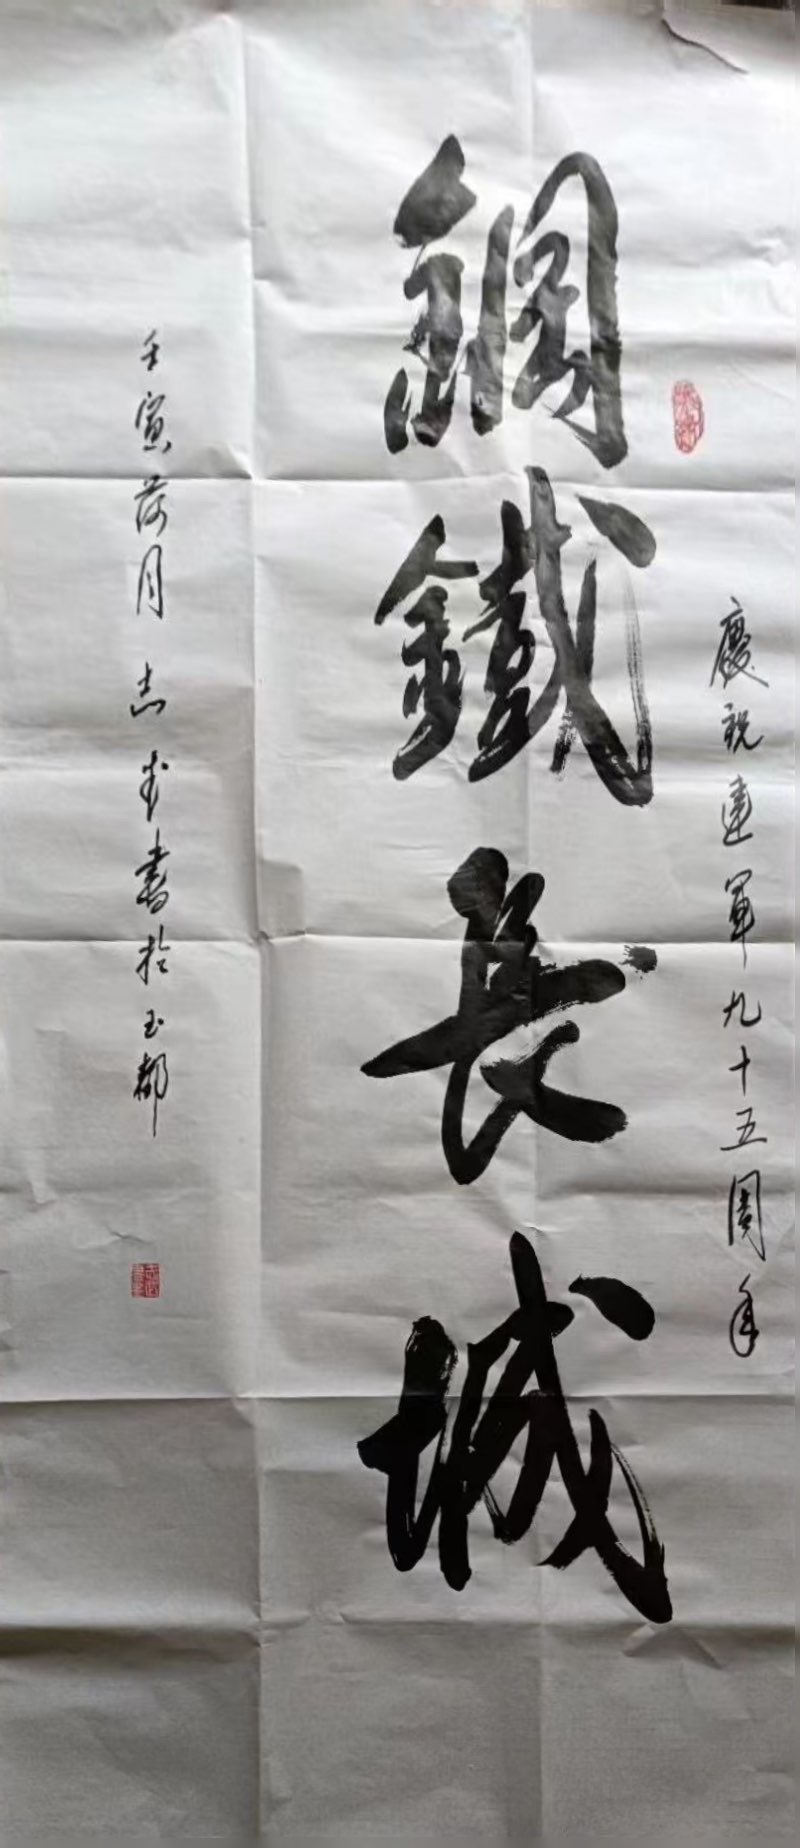 慶祝建軍九十五周年
鋼鐵長城
壬寅荷月 志書於玉都